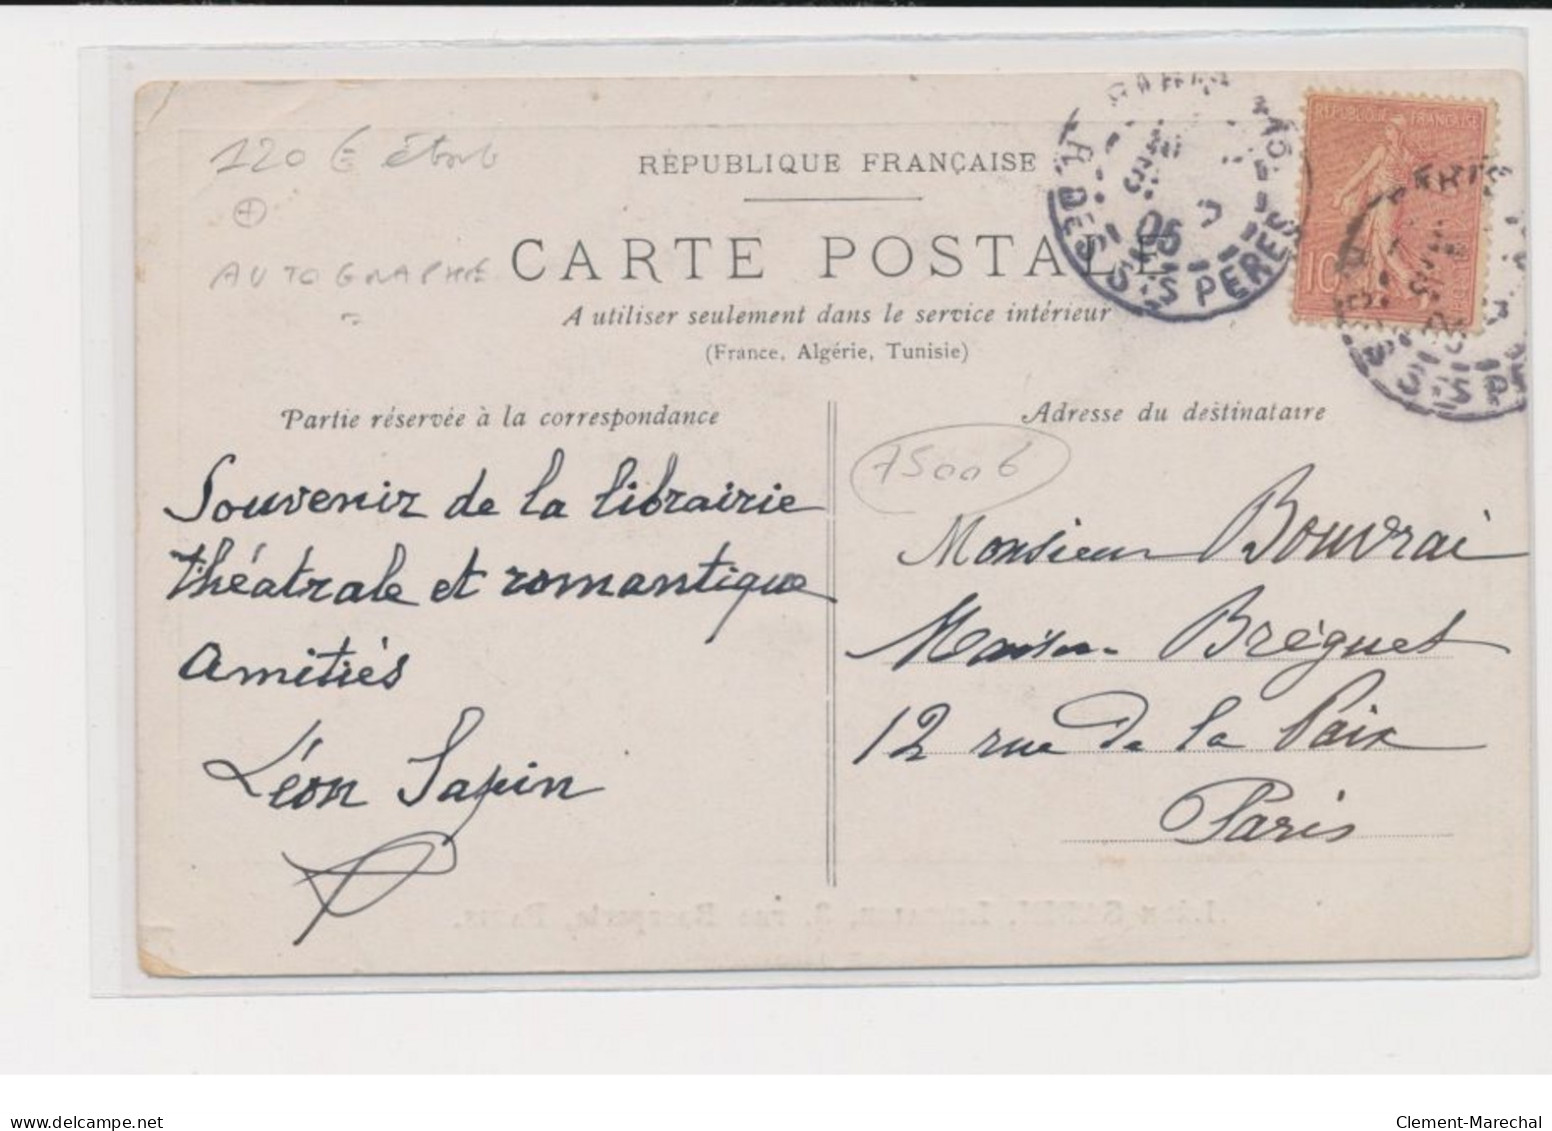 120 €
AUTOGRAPHE
RÉPUBLIQUE FRANÇAISE
CARTE POSTALE
A utiliser seulement dans le service intérieur
(France, Algérie, Tunisie)
RÉPUBLIQUE FRANÇAISE
10
R. DES STS PÈRES
05
Partie réservée à la correspondance
Souvenir de la librairie
théâtrale et romantique
Amitiés
Léon Sapin
Adresse du destinataire
75006
Monsieur Bouvrai
Maison Bréguet
12 rue de la Paix
Paris
delcampe.net
Clement-Marechal